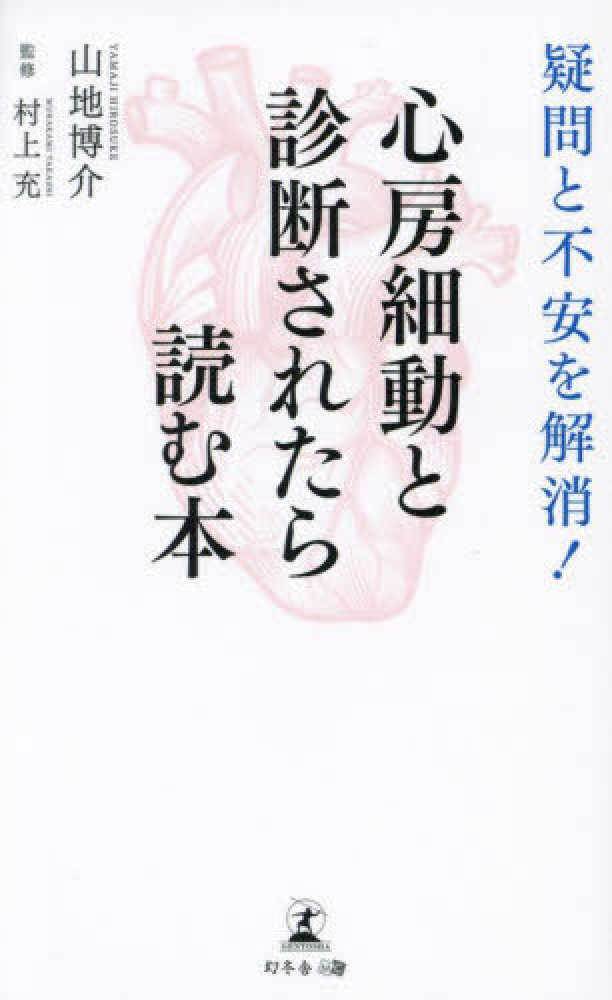 疑問と不安を解消!
心房細動と
診断されたら
読む本
YAMAJI HIROSUKE
山地博介
監修
MURAKAMI TAKASHI
村上 充
GENTOSHA
幻冬舎